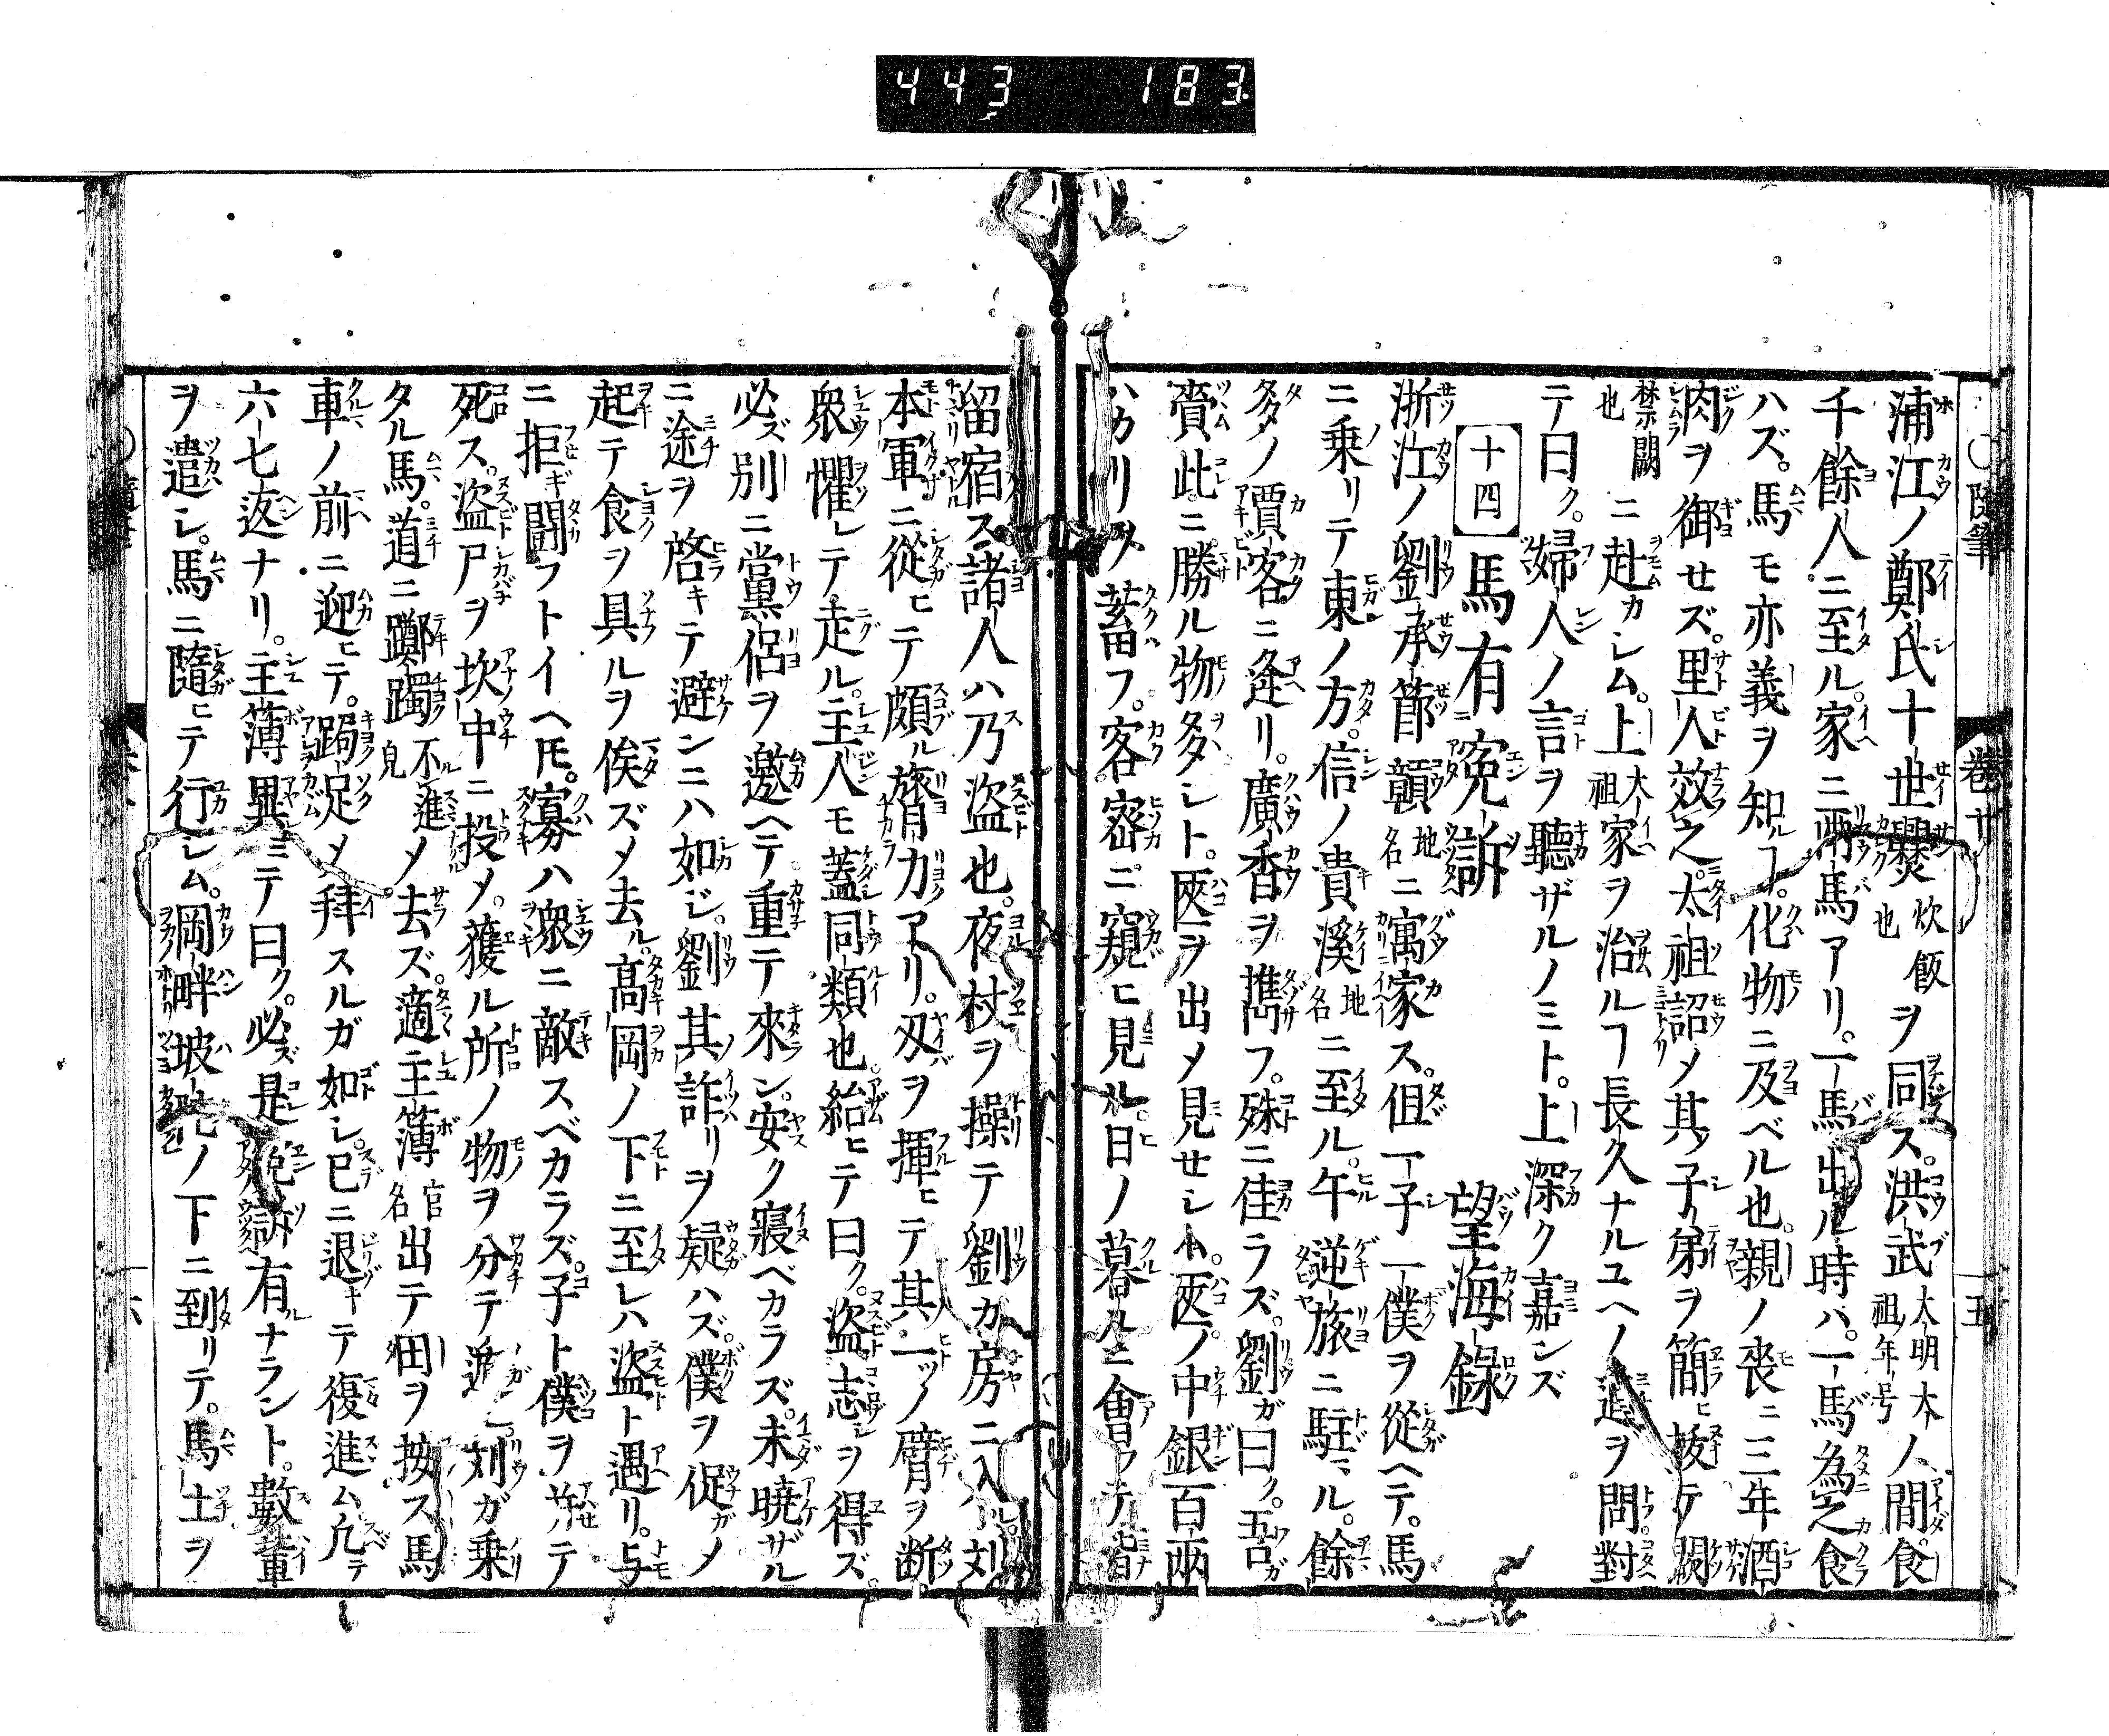 443 183
○隨筆 卷廿 五
浦江ノ鄭氏十世爨炊飯也ヲ同ス。洪武大明太祖ノ年号人間食
千餘人ニ至ル。家ニ兩馬アリ。一馬出ル時ハ。一馬為之食
ハズ。馬モ亦義ヲ知ルヿ。化物ニ及ベル也。親ノ喪ニ三年酒
肉ヲ御セズ。里人效之。太祖詔メ其子弟ヲ簡ヒ抜テ闕
禁闕也ニ赴カシム。上大祖家ヲ治ルヿ長久ナルユヘノ道ヲ問。對
テ曰ク。婦人ノ言ヲ聽ザルノミト。上深ク嘉ンズ
十四 馬有寃訴 望海錄
浙江ノ劉承節顗地名ニ寓家ス。但一子一僕ヲ從ヘテ。馬
ニ乗リテ東ノ方。信ノ貴溪地名ニ至ル。午逆旅ニ駐マル。餘
多タノ賈客ニ逢リ。廣香ヲ携フ。殊ニ佳ラズ。劉ガ曰ク。吾ガ
賷此ニ勝ル物多シト。匧ヲ出メ見セシム。匧ノ中銀百兩
ハカリヲ蓄フ。客密ニ窺ヒ見ル。日ノ暮ルニ會フテ皆
留宿ス。諸人ハ乃盜也。夜杖ヲ操テ劉カ房ニ入ル。刘
本軍ニ從ヒテ頗ル膂力アリ。刃ヲ揮ヒテ其一ツノ臂ヲ断
衆懼レテ走ル。主人モ蓋同類也。紿ヒテ曰ク。盜志ヲ得ズ
必ズ別ニ黨侶ヲ邀ヘテ。重テ來ン。安ク寢ベカラズ。未曉ザル
ニ途ヲ啓キテ避ンニハ如ジ。劉其詐リヲ疑ハズ。僕ヲ促ガメ
起テ食ヲ具ルヲ俟ズメ去ル。高岡ノ下ニ至レハ盜ト遇リ。与
ニ拒ギ鬪フトイヘ𪜈。寡ハ衆ニ敵スベカラズ。子ト僕ヲ并テ
死ス。盜尸ヲ坎中ニ投メ。獲ル所ノ物ヲ分テ刘ガ乗
タル馬。道ニ躑躅不進見メ去ズ。適主簿官名出テ田ヲ按ス馬
車ノ前ニ迎ヒテ。跼足メ拜スルガ如シ。已ニ退キテ復進ム凡テ
六七返ナリ。主薄異ミテ曰ク。必ズ是寃訴有ルナラント。數輩
ヲ遣シ。馬ニ隨ヒテ行シム。岡畔坡ノ下ニ到リテ。馬土ヲ